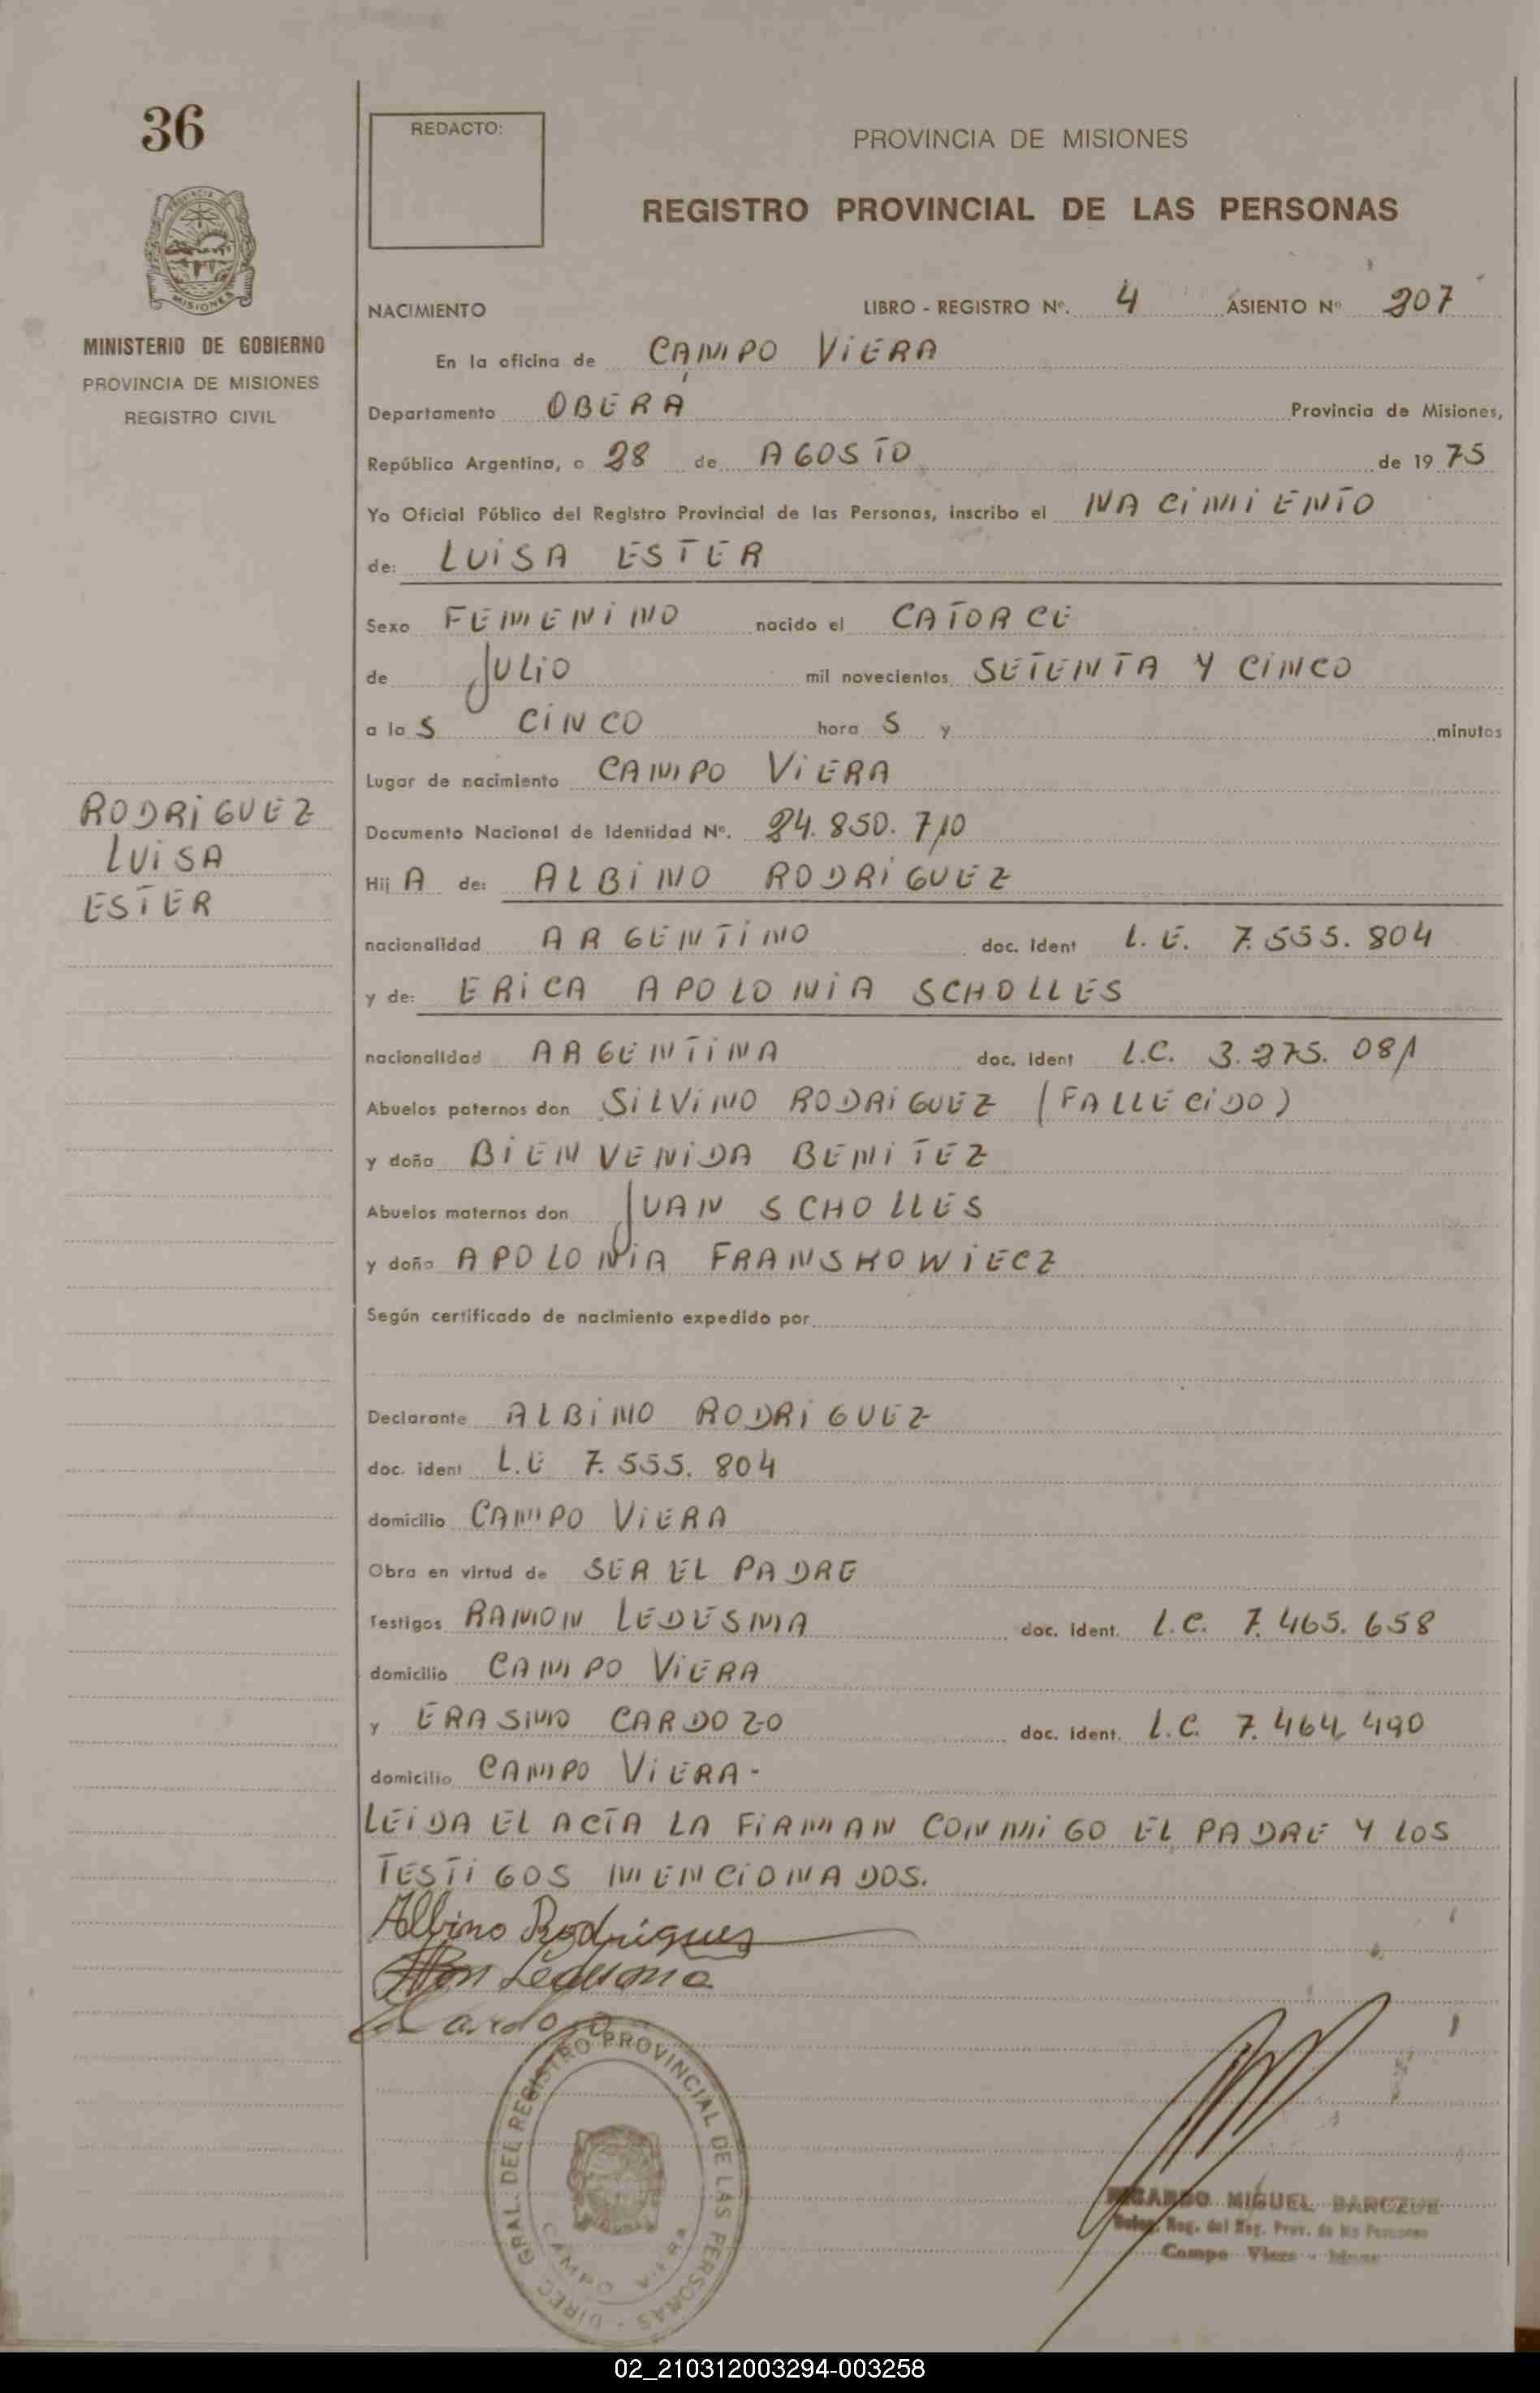 36
REDACTO:
PROVINCIA DE MISIONES
REGISTRO PROVINCIAL DE LAS PERSONAS
MINISTERIO DE GOBIERNO
PROVINCIA DE MISIONES
REGISTRO CIVIL
NACIMIENTO LIBRO - REGISTRO Nº. 4 ASIENTO Nº 207
En la oficina de CAMPO VIERA
Departamento OBERÁ Provincia de Misiones,
República Argentina, a 28 de AGOSTO de 1975
Yo Oficial Público del Registro Provincial de las Personas, inscribo el NACIMIENTO
de: LUISA ESTER
Sexo FEMENINO nacido el CATORCE
de JULIO mil novecientos SETENTA Y CINCO
a las CINCO horas y minutos
Lugar de nacimiento CAMPO VIERA
RODRIGUEZ
LUISA
ESTER
Documento Nacional de Identidad Nº. 24.850.710
Hija de: ALBINO RODRIGUEZ
nacionalidad ARGENTINO doc. ident L.E. 7.555.804
y de: ERICA APOLONIA SCHOLLES
nacionalidad ARGENTINA doc. ident L.C. 3.275.081
Abuelos paternos don SILVINO RODRIGUEZ (FALLECIDO)
y doña BIENVENIDA BENITEZ
Abuelos maternos don JUAN SCHOLLES
y doña APOLONIA FRANSKOWIECZ
Según certificado de nacimiento expedido por
Declarante ALBINO RODRIGUEZ
doc. ident L.E 7.555.804
domicilio CAMPO VIERA
Obra en virtud de SER EL PADRE
Testigos RAMON LEDESMA doc. ident. L.C. 7.465.658
domicilio CAMPO VIERA
y ERASMO CARDOZO doc. ident. L.C. 7.464.490
domicilio CAMPO VIERA-
LEIDA EL ACTA LA FIRMAN CONMIGO EL PADRE Y LOS
TESTIGOS MENCIONADOS.
Albino Rodrigues
Ledesma
Cardozo
DIREC. GRAL. DEL REGISTRO PROVINCIAL DE LAS PERSONAS
CAMPO VIERA
RICARDO MIGUEL
Reg. del Reg. Prov. de las Personas
Campo Viera -
02_210312003294-003258